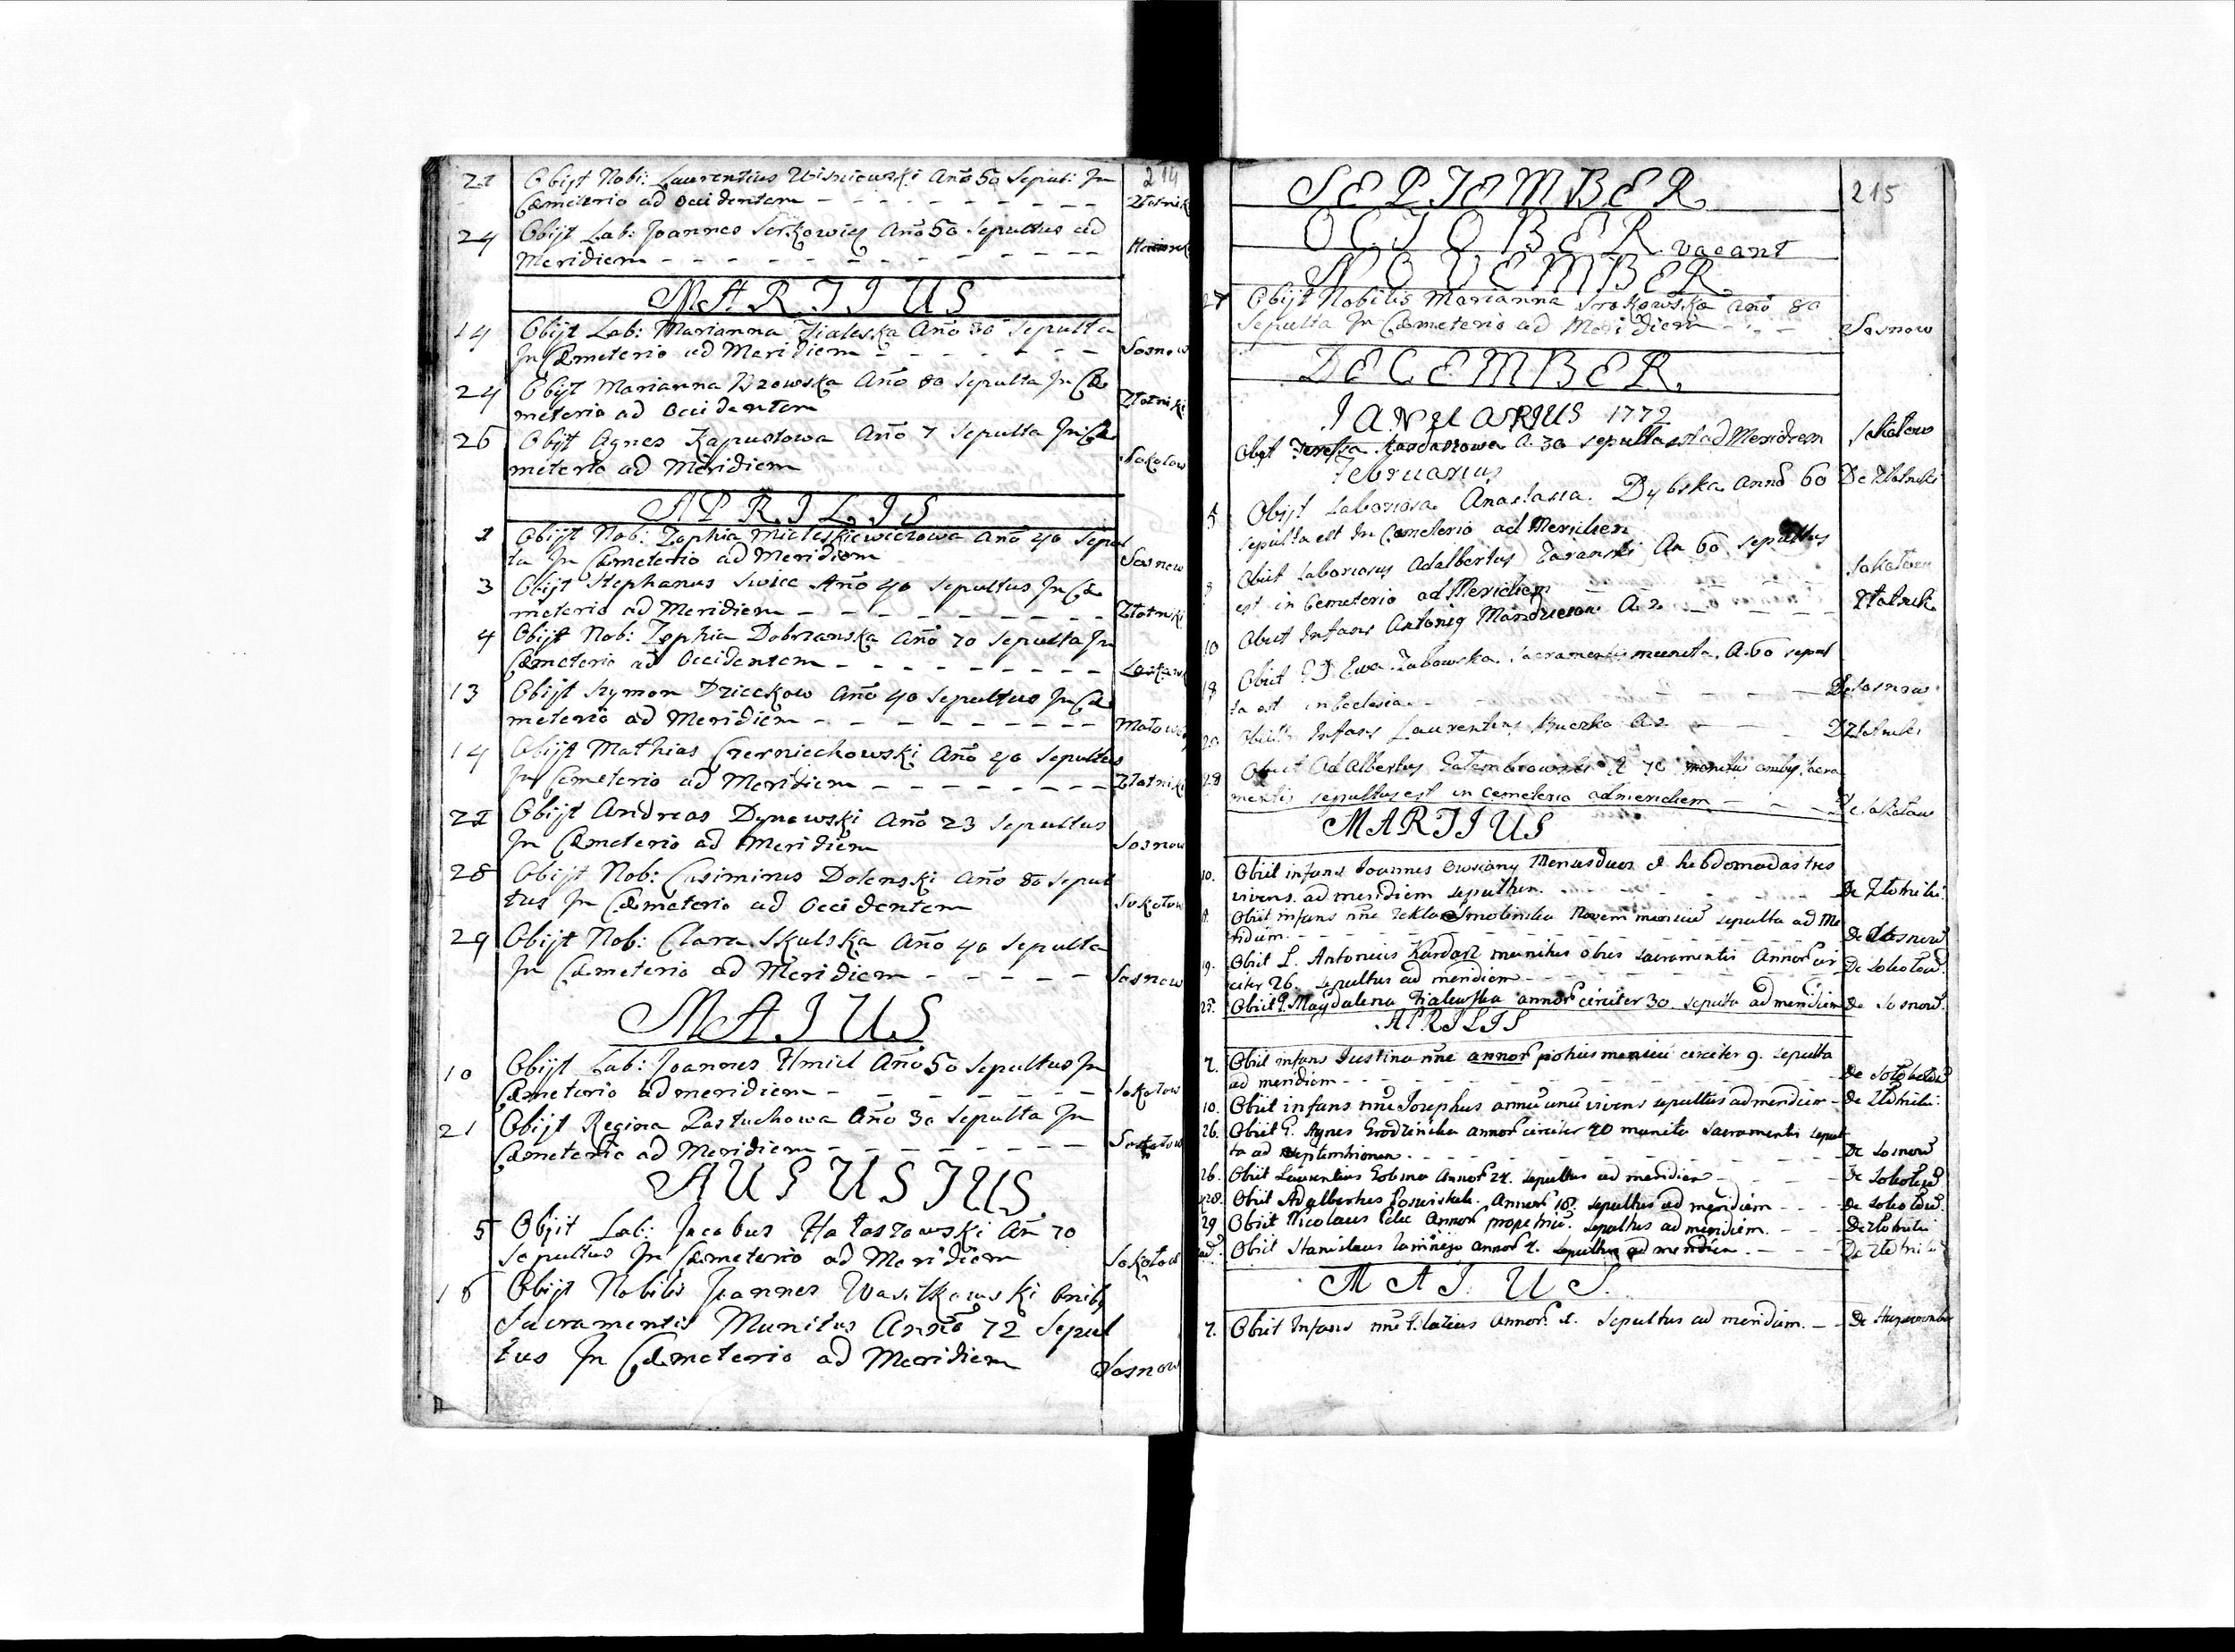 214
21 Obijt Nobi: Laurentius Wisniowski Ano 50 Sepul: Jn
Cæmeterio ad Occidentem Złotnik
24 Obijt Lab: Joannes Serkowicz Ano 50 Sepultus ad
Meridiem
MARTIUS
14 Obijt Lab: Marianna Fialeska Ano 30 Sepulta
Jn Cæmeterio ad Meridiem Sosnow
24 Obijt Marianna Brzowska Ano 80 Sepulta Jn Cæ
meterio ad Occidentem Złotniki
26 Obijt Agnes Kapustowa Ano 7 Sepulta Jn Cæ
meterio ad Meridiem Sokolow
APRILIS
2 Obijt Nob: Zophia Mieleskiewiczowa Ano 40 Sepul
ta Jn Cæmeterio ad Meridiem Sosnow
3 Obijt Stephanus Swiec Ano 40 Sepultus Jn Cæ
meterio ad Meridiem Złotniki
4 Obijt Nob: Zophia Dobrzanska Ano 70 Sepulta Jn
Cæmeterio ad Occidentem
13 Obijt Szymon Dzieckow Ano 40 Sepultus Jn Cæ
meterio ad Meridiem
14 Obijt Mathias Czerniechowski Ano 40 Sepultus
Jn Cemeterio ad Meridiem Złotniki
22 Obijt Andreas Dynowski Ano 23 Sepultus
Jn Cæmeterio ad Meridiem Sosnow
28 Obijt Nob: Casimirus Dolenski Ano 80 Sepul
tus Jn Cæmeterio ad Occidentem Sokołow
29 Obijt Nob: Clara Skulska Ano 40 Sepulta
Jn Cæmeterio ad Meridiem Sosnow
MAJUS
10 Obijt Lab: Joannes Kmicl Ano 50 Sepultus Jn
Cæmeterio ad meridiem Sokołow
21 Obijt Regina Pastuchowa Ano 30 Sepulta Jn
Cæmeterio ad Meridiem Sokołow
AUGUSTUS
5 Obijt Lab: Jacobus Hałaszowski An 70
Sepultus Jn Cæmeterio ad Meridiem Sokołow
16 Obijt Nobilis Joannes Wasilkowski Omibq
Sacramentis Munitus Anno 72 Sepul
tus Jn Cæmeterio ad Meridiem Sosnow
SEPTEMBER 215
OCTOBER vacant
NOVEMBER
27 Obijt Nobilis Marianna Srokowska Ano 80
Sepulta Jn Cæmeterio ad Meridiem Sosnow
DECEMBER
JANUARIUS 1772
Obijt Teressa A. 30 sepulta est ad Meridiem Sokolow
Februarius
5 Obijt Laboriosa Anastasia Dybska Anno 60 De Złotniki
sepulta est In Cemeterio ad Meridiem
Obiit Laboriosus Adalbertus Zaranski An 60 sepultus
est in Cemeterio ad Meridiem Sokołow
10 Obiit Infans Antonig A 2 Złotnik
18 Obiit Ewa Zabowska Sacramentis munita A. 60 sepul
ta est in Ecclesia De Sosnow
20 Obiit Infans Laurentius Kuczko A 2 D Złotniki
28 Obiit Adalbertus A 70 munitus omibq sacra
mentis sepultus est in Cemeterio ad meridiem De Sokołow
MARTIUS
10. Obiit infans Joannes Owsiany Menses duos et hebdomadas tres
vivens. ad meridiem sepultus. De Złotniki.
Obiit infans nñe Tekla Smolinska Novem mensiu sepulta ad Me
ridiem. De Sosnow
19. Obiit L. Antonius Kardasz munitus obus sacramentis Annor cir
citer 26. sepultus ad meridiem De Sokołow.
25. Obiit G. Magdalena Fialewska annor circiter 30. sepulta ad meridiem De Sosnow.
APRILIS
7. Obiit infans Justina nñe annor potius mensiu circiter 9. sepulta
ad meridiem De Sokołow
10. Obiit infans nñe Josephus annu unu vivens sepultus ad meridiem De Złotniki.
26. Obiit G. Agnes Grodzinska annor circiter 70 munita sacramentis sepul
ta ad septemtrionem. De Sosnow
26. Obiit Laurentius annor 24. sepultus ad meridiem De Sokołow
28. Obiit Adalbertus Annor 18. sepultus ad meridiem De Sokołow.
29 Obiit Nicolaus annor sepultus ad meridiem. De Złotniki
Obiit Stanislaus annor 4. sepultus ad meridiem. De Złotniki
MAJUS.
7. Obiit Infans nñe annor. 4. Sepultus ad meridiem. De